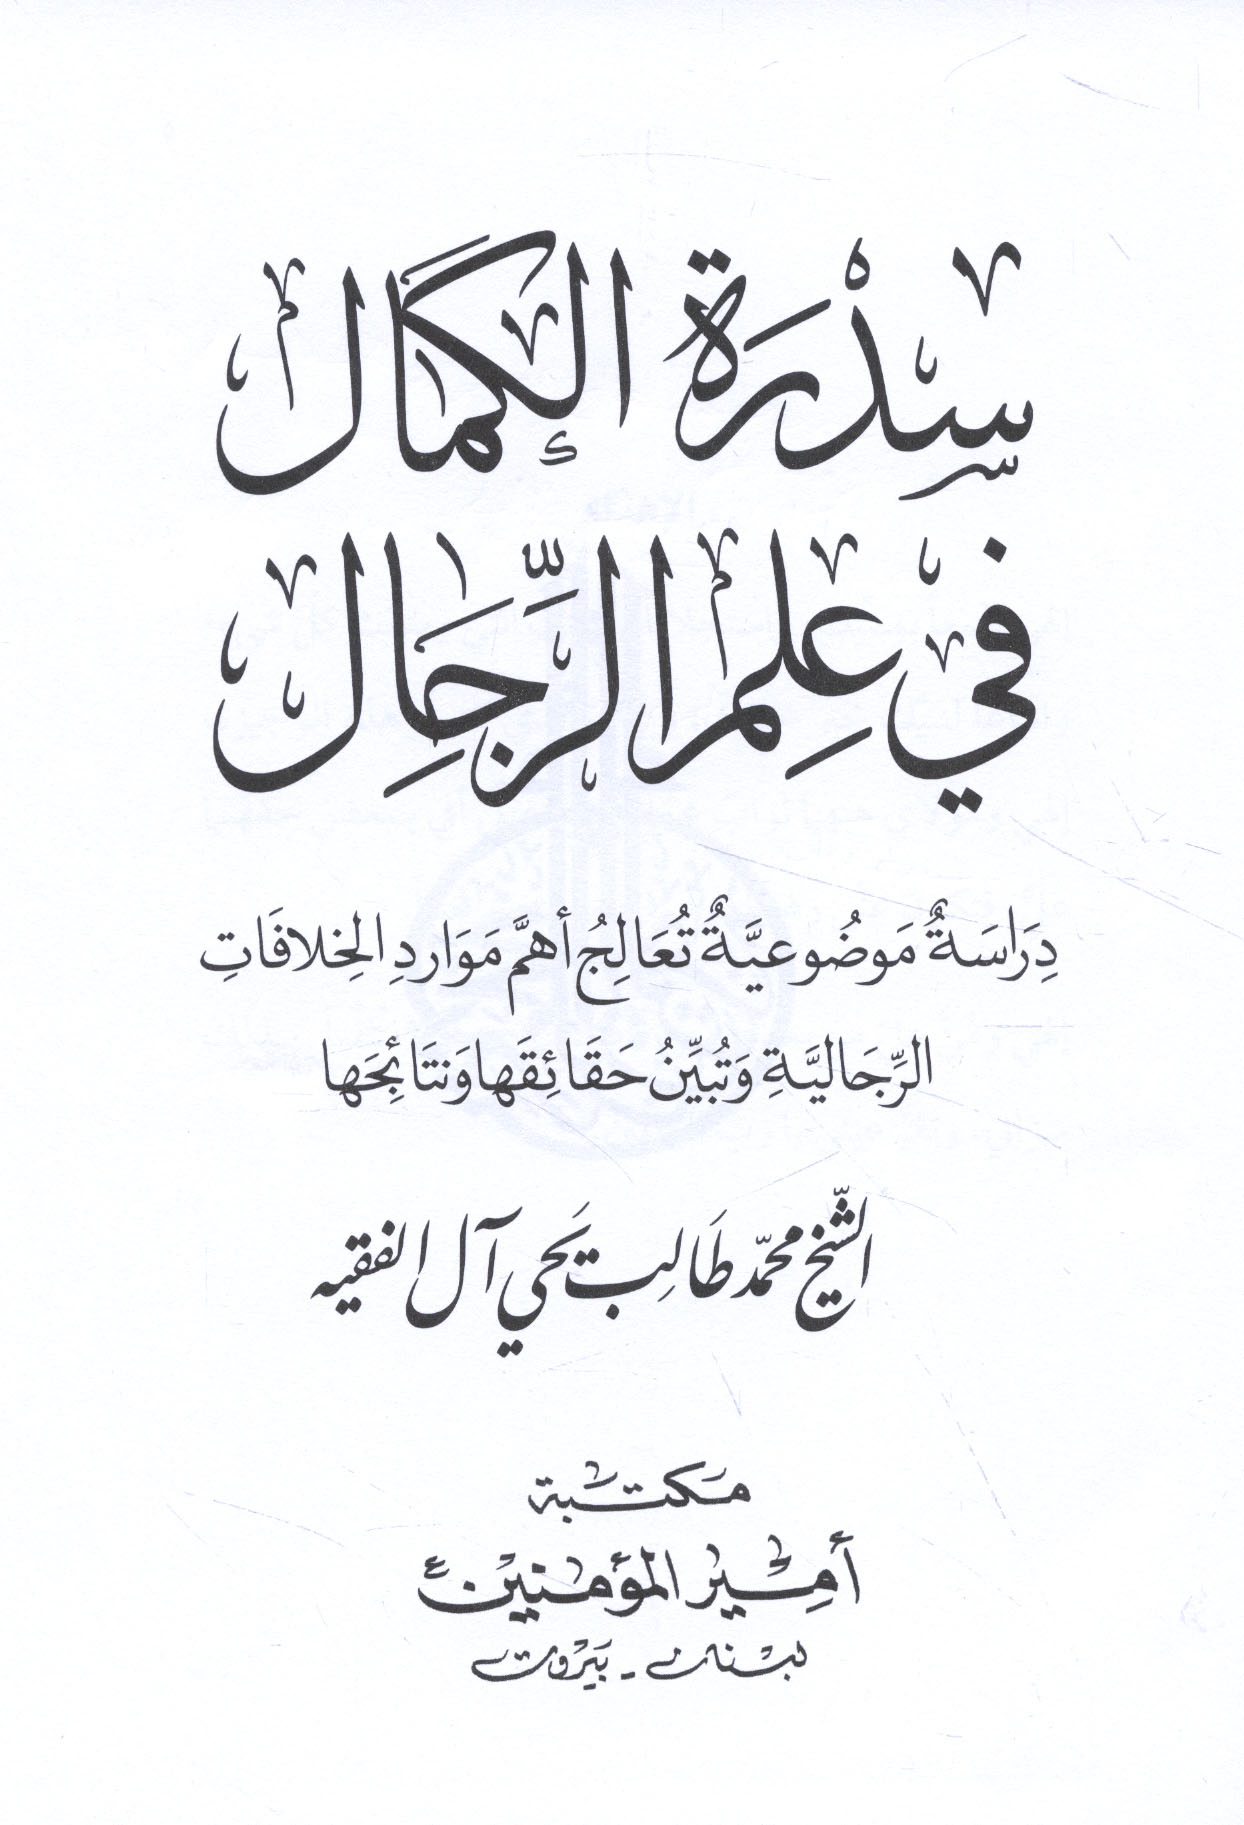 سِدْرَة الكَمَال
في عِلم الرِّجَالِ
دِرَاسَةٌ مَوضُوعيَّةٌ تُعَالِجُ أهمَّ مَوَاردِ الخِلافَاتِ
الرِّجَاليَّةِ وَتُبيِّنُ حَقَائِقَها وَنتَائِجَها
الشّيخ محمّد طَالِب يَحيي آل الفقيه
مكتبة
أمير المؤمنين ع
لبنان - بيروت